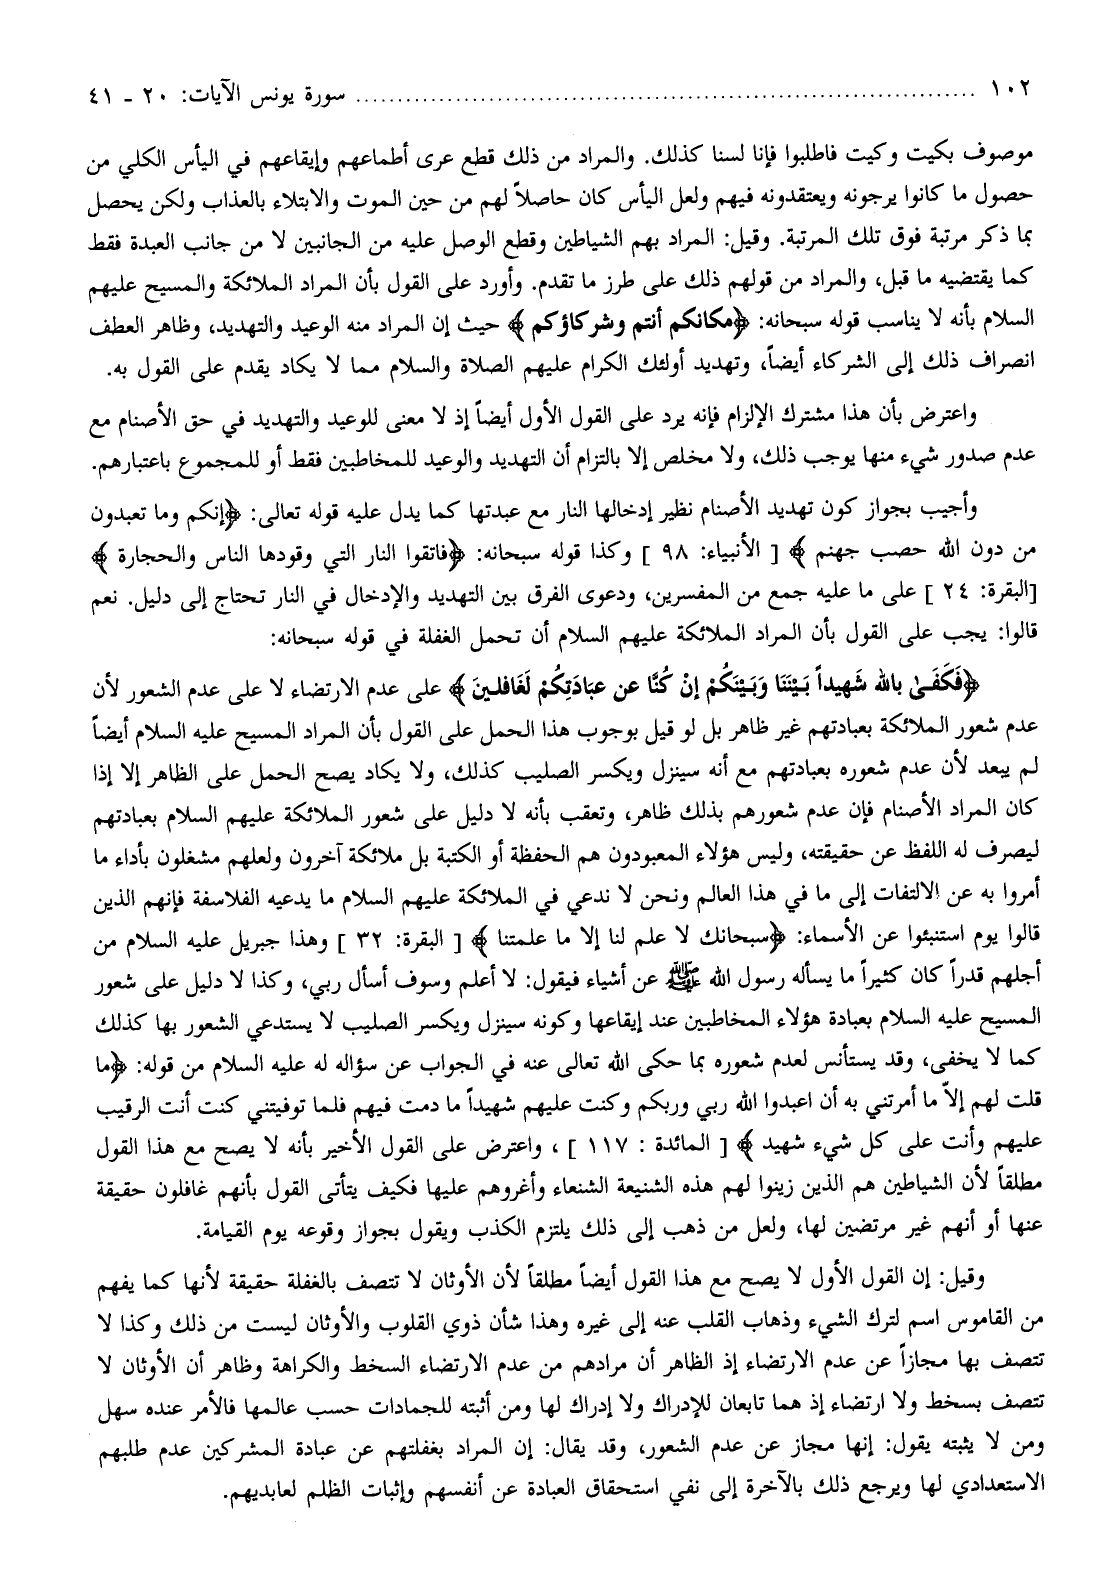 ١٠٢ ........................................................................ سورة يونس الآيات: ٢٠ - ٤١
موصوف بكيت وكيت فاطلبوا فإنا لسنا كذلك. والمراد من ذلك قطع عرى أطماعهم وإيقاعهم في اليأس الكلي من
حصول ما كانوا يرجونه ويعتقدونه فيهم ولعل اليأس كان حاصلاً لهم من حين الموت والابتلاء بالعذاب ولكن يحصل
بما ذكر مرتبة فوق تلك المرتبة. وقيل: المراد بهم الشياطين وقطع الوصل عليه من الجانبين لا من جانب العبدة فقط
كما يقتضيه ما قبل، والمراد من قولهم ذلك على طرز ما تقدم. وأورد على القول بأن المراد الملائكة والمسيح عليهم
السلام بأنه لا يناسب قوله سبحانه: ﴿مكانكم أنتم وشركاؤكم﴾ حيث إن المراد منه الوعيد والتهديد، وظاهر العطف
انصراف ذلك إلى الشركاء أيضاً، وتهديد أولئك الكرام عليهم الصلاة والسلام مما لا يكاد يقدم على القول به.
واعترض بأن هذا مشترك الإلزام فإنه يرد على القول الأول أيضاً إذ لا معنى للوعيد والتهديد في حق الأصنام مع
عدم صدور شيء منها يوجب ذلك، ولا مخلص إلا بالتزام أن التهديد والوعيد للمخاطبين فقط أو للمجموع باعتبارهم.
وأجيب بجواز كون تهديد الأصنام نظير إدخالها النار مع عبدتها كما يدل عليه قوله تعالى: ﴿إنكم وما تعبدون
من دون الله حصب جهنم﴾ [ الأنبياء: ٩٨ ] وكذا قوله سبحانه: ﴿فاتقوا النار التي وقودها الناس والحجارة﴾
[البقرة: ٢٤ ] على ما عليه جمع من المفسرين، ودعوى الفرق بين التهديد والإدخال في النار تحتاج إلى دليل. نعم
قالوا: يجب على القول بأن المراد الملائكة عليهم السلام أن تحمل الغفلة في قوله سبحانه:
﴿فَكَفَىٰ بالله شَهيداً بَيْنَنَا وَبَيْنَكُمْ إنْ كُنَّا عن عبَادَتِكُمْ لَغَافلينَ﴾ على عدم الارتضاء لا على عدم الشعور لأن
عدم شعور الملائكة بعبادتهم غير ظاهر بل لو قيل بوجوب هذا الحمل على القول بأن المراد المسيح عليه السلام أيضاً
لم يبعد لأن عدم شعوره بعبادتهم مع أنه سينزل ويكسر الصليب كذلك، ولا يكاد يصح الحمل على الظاهر إلا إذا
كان المراد الأصنام فإن عدم شعورهم بذلك ظاهر، وتعقب بأنه لا دليل على شعور الملائكة عليهم السلام بعبادتهم
ليصرف له اللفظ عن حقيقته، وليس هؤلاء المعبودون هم الحفظة أو الكتبة بل ملائكة آخرون ولعلهم مشغلون بأداء ما
أمروا به عن الالتفات إلى ما في هذا العالم ونحن لا ندعي في الملائكة عليهم السلام ما يدعيه الفلاسفة فإنهم الذين
قالوا يوم استنبئوا عن الأسماء: ﴿سبحانك لا علم لنا إلا ما علمتنا﴾ [ البقرة: ٣٢ ] وهذا جبريل عليه السلام من
أجلهم قدراً كان كثيراً ما يسأله رسول الله ﷺ عن أشياء فيقول: لا أعلم وسوف أسأل ربي، وكذا لا دليل على شعور
المسيح عليه السلام بعبادة هؤلاء المخاطبين عند إيقاعها وكونه سينزل ويكسر الصليب لا يستدعي الشعور بها كذلك
كما لا يخفى، وقد يستأنس لعدم شعوره بما حكى الله تعالى عنه في الجواب عن سؤاله له عليه السلام من قوله: ﴿ما
قلت لهم إلاّ ما أمرتني به أن اعبدوا الله ربي وربكم وكنت عليهم شهيداً ما دمت فيهم فلما توفيتني كنت أنت الرقيب
عليهم وأنت على كل شيء شهيد﴾ [ المائدة : ١١٧ ] ، واعترض على القول الأخير بأنه لا يصح مع هذا القول
مطلقاً لأن الشياطين هم الذين زينوا لهم هذه الشنيعة الشنعاء وأغروهم عليها فكيف يتأتى القول بأنهم غافلون حقيقة
عنها أو أنهم غير مرتضين لها، ولعل من ذهب إلى ذلك يلتزم الكذب ويقول بجواز وقوعه يوم القيامة.
وقيل: إن القول الأول لا يصح مع هذا القول أيضاً مطلقاً لأن الأوثان لا تتصف بالغفلة حقيقة لأنها كما يفهم
من القاموس اسم لترك الشيء وذهاب القلب عنه إلى غيره وهذا شأن ذوي القلوب والأوثان ليست من ذلك وكذا لا
تتصف بها مجازاً عن عدم الارتضاء إذ الظاهر أن مرادهم من عدم الارتضاء السخط والكراهة وظاهر أن الأوثان لا
تتصف بسخط ولا ارتضاء إذ هما تابعان للإدراك ولا إدراك لها ومن أثبته للجمادات حسب عالمها فالأمر عنده سهل
ومن لا يثبته يقول: إنها مجاز عن عدم الشعور، وقد يقال: إن المراد بغفلتهم عن عبادة المشركين عدم طلبهم
الاستعدادي لها ويرجع ذلك بالآخرة إلى نفي استحقاق العبادة عن أنفسهم وإثبات الظلم لعابديهم.